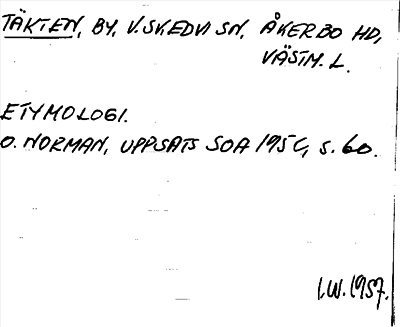 TÄKTEN, BY, V. SKEDVI SN, ÅKERBO HD,
VÄSTM. L.
ETYMOLOGI.
O. NORMAN, UPPSATS SOA 1950, s. 60.
I.W. 1957.